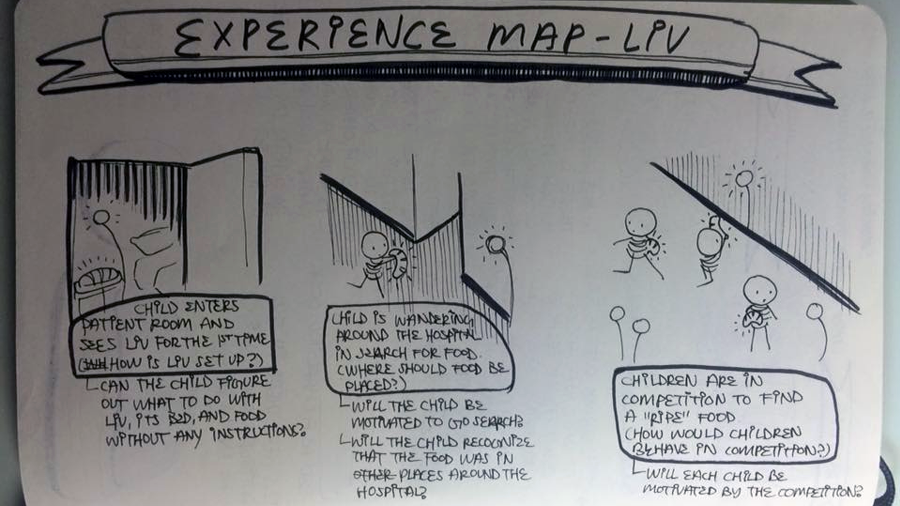 EXPERIENCE MAP - LIV
CHILD ENTERS
PATIENT ROOM AND
SEES LIV FOR THE 1ST TIME
(HOW IS LIV SET UP?)
CAN THE CHILD FIGURE
OUT WHAT TO DO WITH
LIV, ITS BED, AND FOOD
WITHOUT ANY INSTRUCTIONS?
CHILD IS WANDERING
AROUND THE HOSPITAL
IN SEARCH FOR FOOD.
(WHERE SHOULD FOOD BE
PLACED?)
WILL THE CHILD BE
MOTIVATED TO GO SEARCH?
WILL THE CHILD RECOGNIZE
THAT THE FOOD WAS IN
OTHER PLACES AROUND THE
HOSPITAL?
CHILDREN ARE IN
COMPETITION TO FIND
A "RIPE" FOOD
(HOW WOULD CHILDREN
BEHAVE IN COMPETITION?)
WILL EACH CHILD BE
MOTIVATED BY THE COMPETITION?